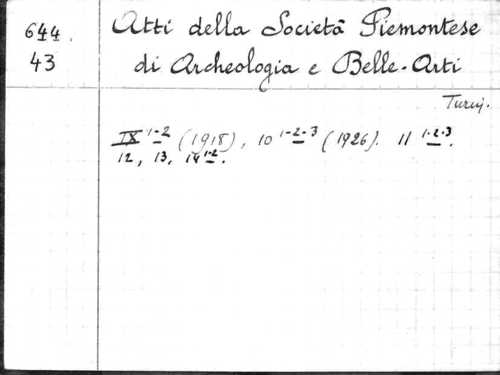 644.
43
Atti della Società Piemontese
di Archeologia e Belle-Arti
Turin.
IX 1-2 (1918), 10 1-2-3 (1926). 11 1-2-3.
12, 13, 14 1-2.